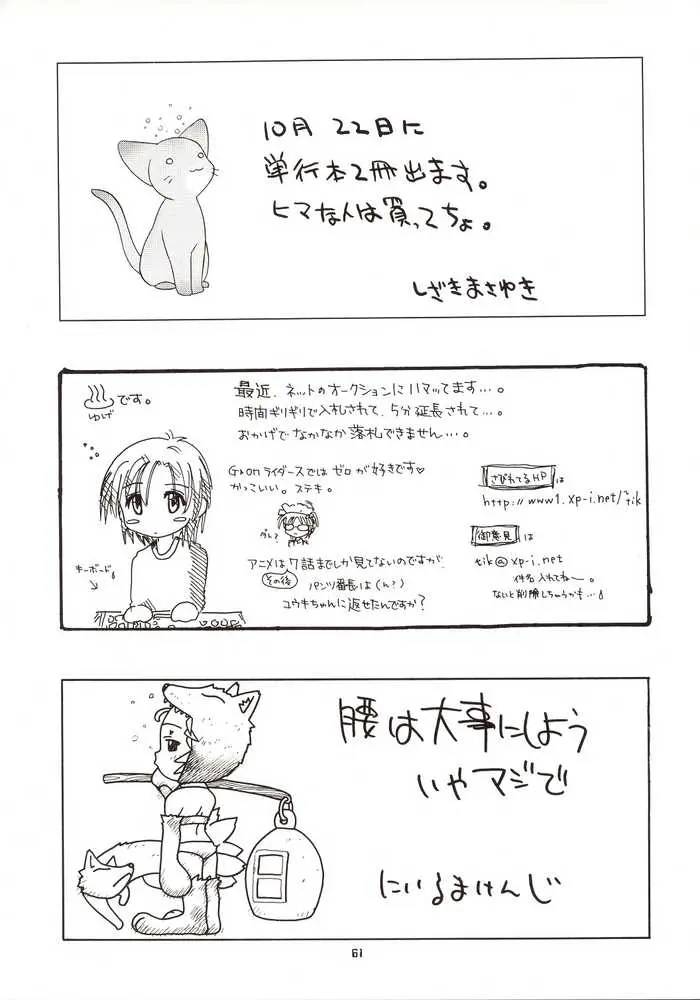 10月 22日に
単行本2冊出ます。
ヒマな人は買ってちょ。
しざきまさゆき
♨です。
ゆげ
最近、ネットのオークションにハマッてます…。
時間ギリギリで入札されて、5分延長されて…。
おかげでなかなか落札できません…。
G-onライダースでは ゼロが好きです♡
かっこいい。ステキ。
ダレ?
アニメは7話までしか見てないのですが、
その後 パンツ番長は(ん?)
ユウキちゃんに返せたんですか?
キーボード
さびれてるHPは
http://www1.xp-i.net/~tik
御意見は
tik@xp-i.net
件名入れてねー。
ないと削除しちゃうかも…
腰は大事にしよう
いやマジで
にいるまけんじ
61